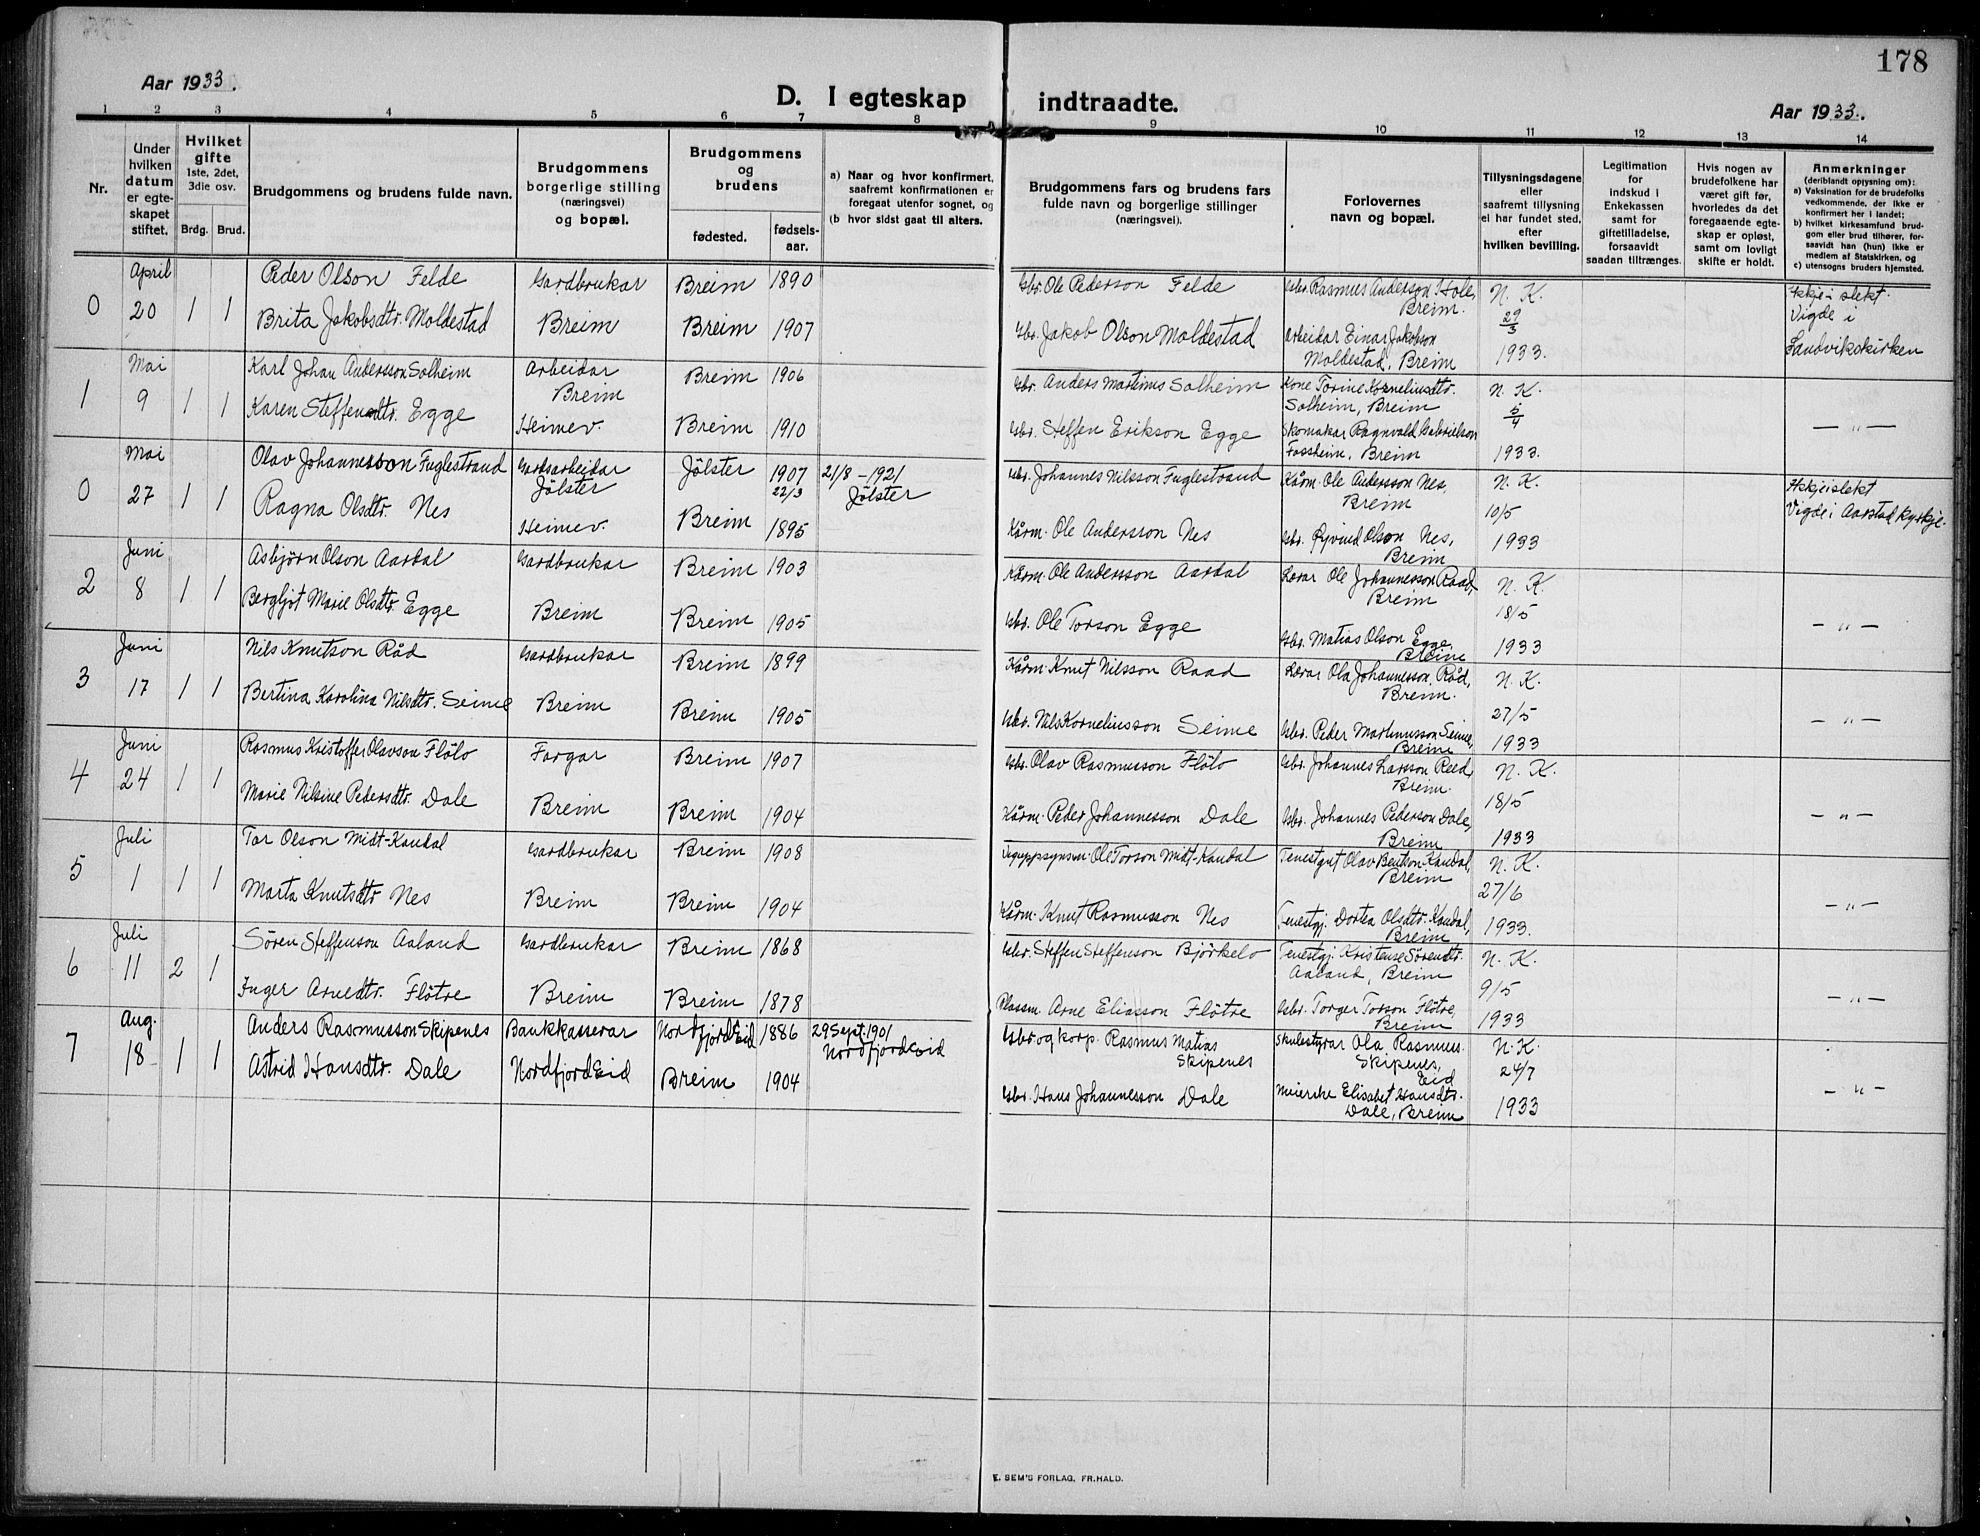 178
Aar 1933.
D. I egteskap indtraadte.
Aar 1933.
1 2 3 4 5 6 7 8 9 10 11 12 13 14
Nr.
Under hvilken datum er egte-skapet stiftet.
Hvilket gifte 1ste, 2det, 3die osv.
Brdg. Brud.
Brudgommens og brudens fulde navn.
Brudgommens borgerlige stilling (næringsvei) og bopæl.
Brudgommens og brudens
fødested. fødsels-aar.
a) Naar og hvor konfirmert, saafremt konfirmationen er foregaat utenfor sognet, og
(b hvor sidst gaat til alters.
Brudgommens fars og brudens fars fulde navn og borgerlige stillinger (næringsvei).
Forlovernes navn og bopæl.
Tillysningsdagene eller saafremt tillysning ei har fundet sted, efter hvilken bevilling.
Legitimation for indskud i Enkekassen samt for giftetilladelse, forsaavidt saadan tiltrænges.
Hvis nogen av brudefolkene har været gift før, hvorledes da det foregaaende egte-skap er opløst, samt om lovligt skifte er holdt.
Anmerkninger
(deriblandt opjysning om):
a) Vaksination for de brudefolks vedkommende, der ikke er konfirmert her i landet;
b) hvilket kirkesamfund brud-gom eller brud tilhører, for-saavidt han (hun) ikke er medlem af Statskirken, og
c) utensogns bruders hjemsted.
0 April 20 1 1 Peder Olson Felde Gardbrukar Breim 1890 Gbr. Ole Pederson Felde Gbr. Rasmus Anderson Hole, Breim. N. K. 29/3 1933. Ikkje i slekt. Vigde i Sandvikskirken
Brita Jakobsdtr. Moldestad Breim Breim 1907 Gbr. Jakob Olson Moldestad Arbeidar Einar Jakobson Moldestad, Breim
1 Mai 9 1 1 Karl Johan Andersson Solheim Arbeidar Breim Breim 1906 Gbr. Anders Martinus Solheim Kone Torine Korneliusdtr. Solheim, Breim N. K. 5/4 1933. — " —
Karen Steffensdtr. Egge Heimev. Breim 1910 Gbr. Steffen Erikson Egge Skomakar Ragnvald Gabrielson Fossheim, Breim
0 Mai 27 1 1 Olav Johannesson Fuglestrand Gardsarbeidar Jölster Jölster 1907 22/3 21/8 - 1921 Jölster Gbr. Johannes Nilsson Fuglestrand Kårm. Ole Andersson Nes, Breim N. K. 10/5 1933 Ikkje i slekt Vigde i Aarstad kyrkje.
Ragna Olsdtr. Nes Heimev. Breim 1895 Kårm. Ole Andersson Nes Gbr. Øyvind Olson Nes, Breim
2 Juni 8 1 1 Asbjørn Olson Aardal Gardbrukar Breim 1903 Kårm. Ole Andersson Aardal Lærar Ole Johannesson Raad, Breim N. K. 18/5 1933 — " —
Bergljot Marie Olsdtr. Egge Breim Breim 1905 Gbr. Ole Torson Egge Gbr. Matias Olson Egge, Breim
3 Juni 17 1 1 Nils Knutson Råd Gardbrukar Breim 1899 Kårm. Knut Nilsson Raad Lærar Ola Johannesson Råd, Breim. N. K. 27/5 1933 — " —
Bertina Karolina Nilsdtr. Seime Breim Breim 1905 Gbr. Nils Korneliusson Seime Gbr. Peder Martinusson Seime, Breim
4 Juni 24 1 1 Rasmus Kristoffer Olavson Flölo Fargar Breim 1907 Gbr. Olav Rasmusson Flölo Gbr. Johannes Larsson Reed, Breim. N. K. 18/5 1933 — " —
Marie Nilsine Pedersdtr. Dale Breim Breim 1904 Kårm. Peder Johannesson Dale Gbr. Johannes Pederson Dale, Breim
5 Juli 1 1 1 Tor Olson Midt-Kandal Gardbrukar Breim 1908 Ole Torson Midt-Kandal Olav Bentson Kandal, Breim N. K. 27/6 1933. — " —
Marta Knutsdtr Nes Breim Breim 1904 Kårm. Knut Rasmusson Nes Tenestgj. Dortea Olsdtr. Kandal, Breim
6 Juli 11 2 1 Sören Steffenson Aaland Gardbrukar Breim 1868 Gbr. Steffen Steffenson Björkelo Tenestgj. Kristense Sörendtr. Aaland, Breim N. K. 9/5 1933 — " —
Inger Arnedtr. Flötre Breim Breim 1878 Plassm. Arne Eliasson Flötre Gbr. Torger Torson Flötre, Breim
7 Aug. 18 1 1 Anders Rasmusson Skipenes Bankkasserar Nordfjordeid 1886 29 Sept. 1901 Nordfjordeid Gbr. og korp. Rasmus Matias Skipenes Skulestyrar Ola Rasmus. Skipenes, Eid N. K. 24/7 1933 — " —
Astrid Hansdtr. Dale Nordfjordeid Breim 1904 Gbr. Hans Johannesson Dale Meierske Elisabet Hansdtr. Dale, Breim
E. SEM'S FORLAG. FR.HALD.